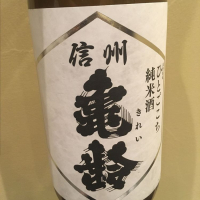 信州
亀齢
きれい
ひとごこち
純米酒